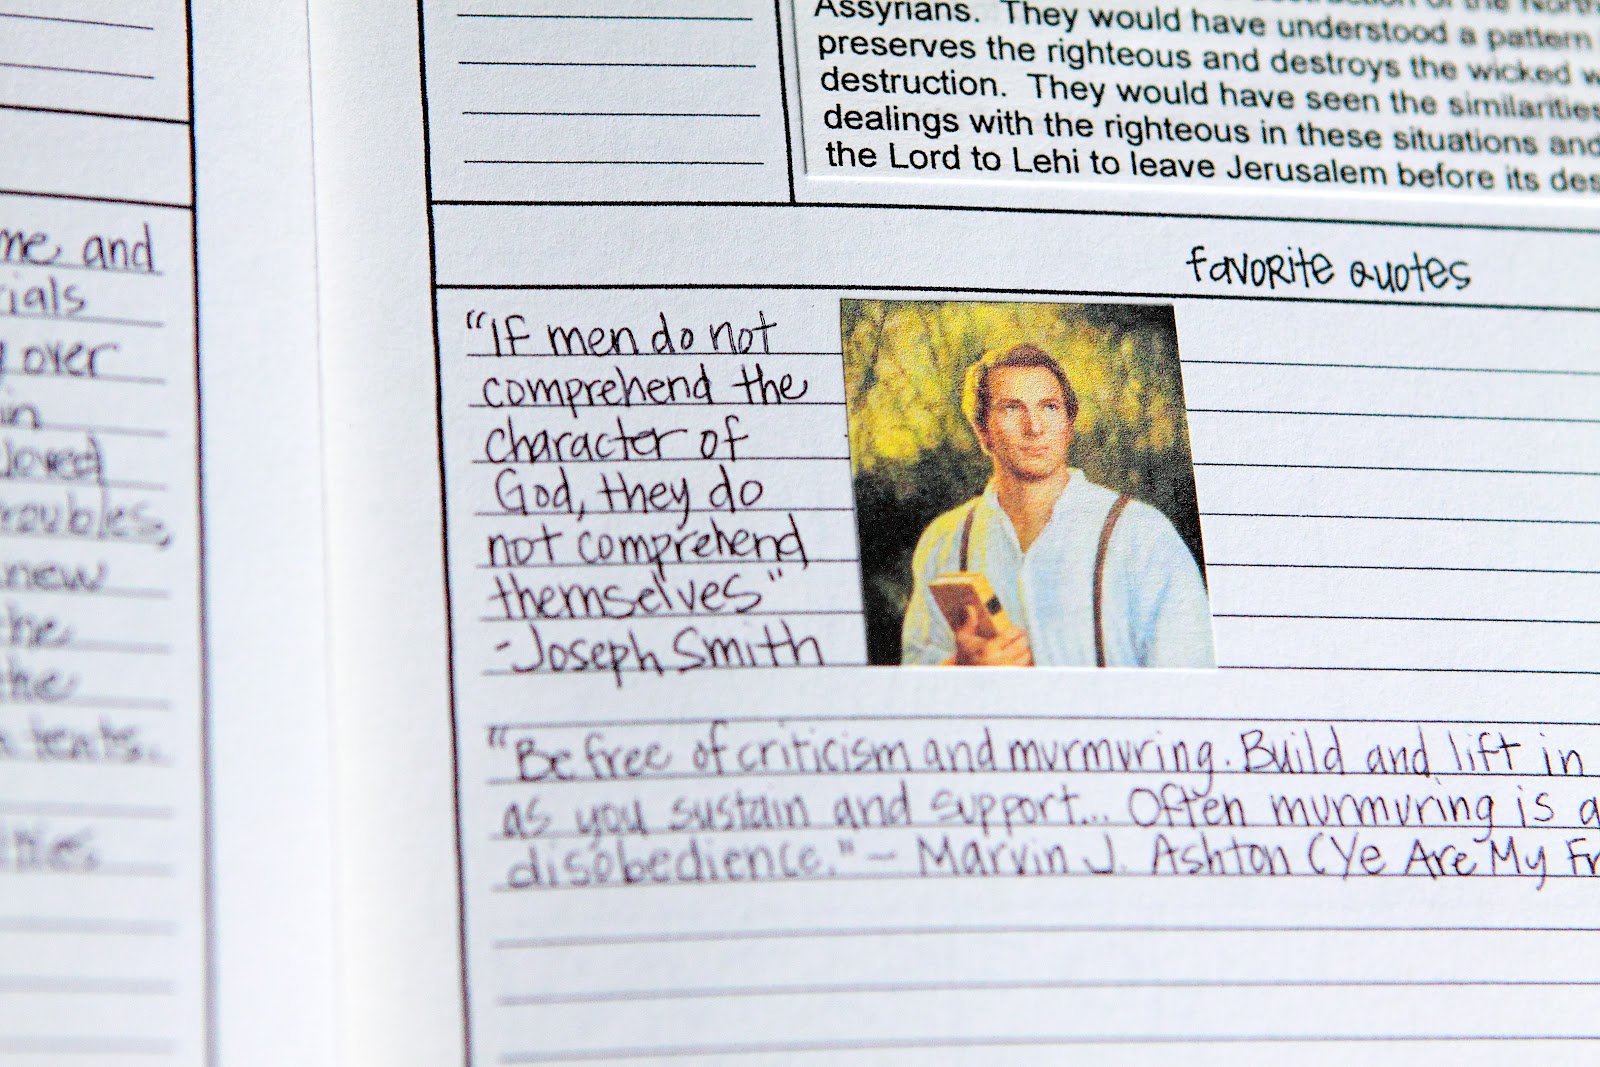 me and
ials
over
in
loved
roubles,
new
the
the
tents.
Assyrians. They would have understood a pattern
preserves the righteous and destroys the wicked
destruction. They would have seen the similarities
dealings with the righteous in these situations and
the Lord to Lehi to leave Jerusalem before its des
favorite quotes
"If men do not
comprehend the
character of
God, they do
not comprehend
themselves"
-Joseph Smith
"Be free of criticism and murmuring. Build and lift in
as you sustain and support... Often murmuring is a
disobedience." - Marvin J. Ashton (Ye Are My Fr